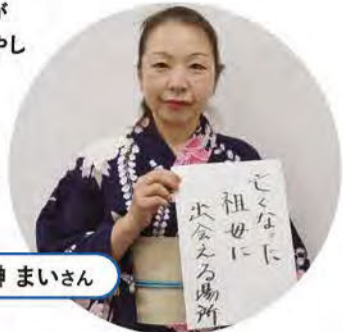 が
やし
亡くなった
祖母に
出会える場所
まいさん